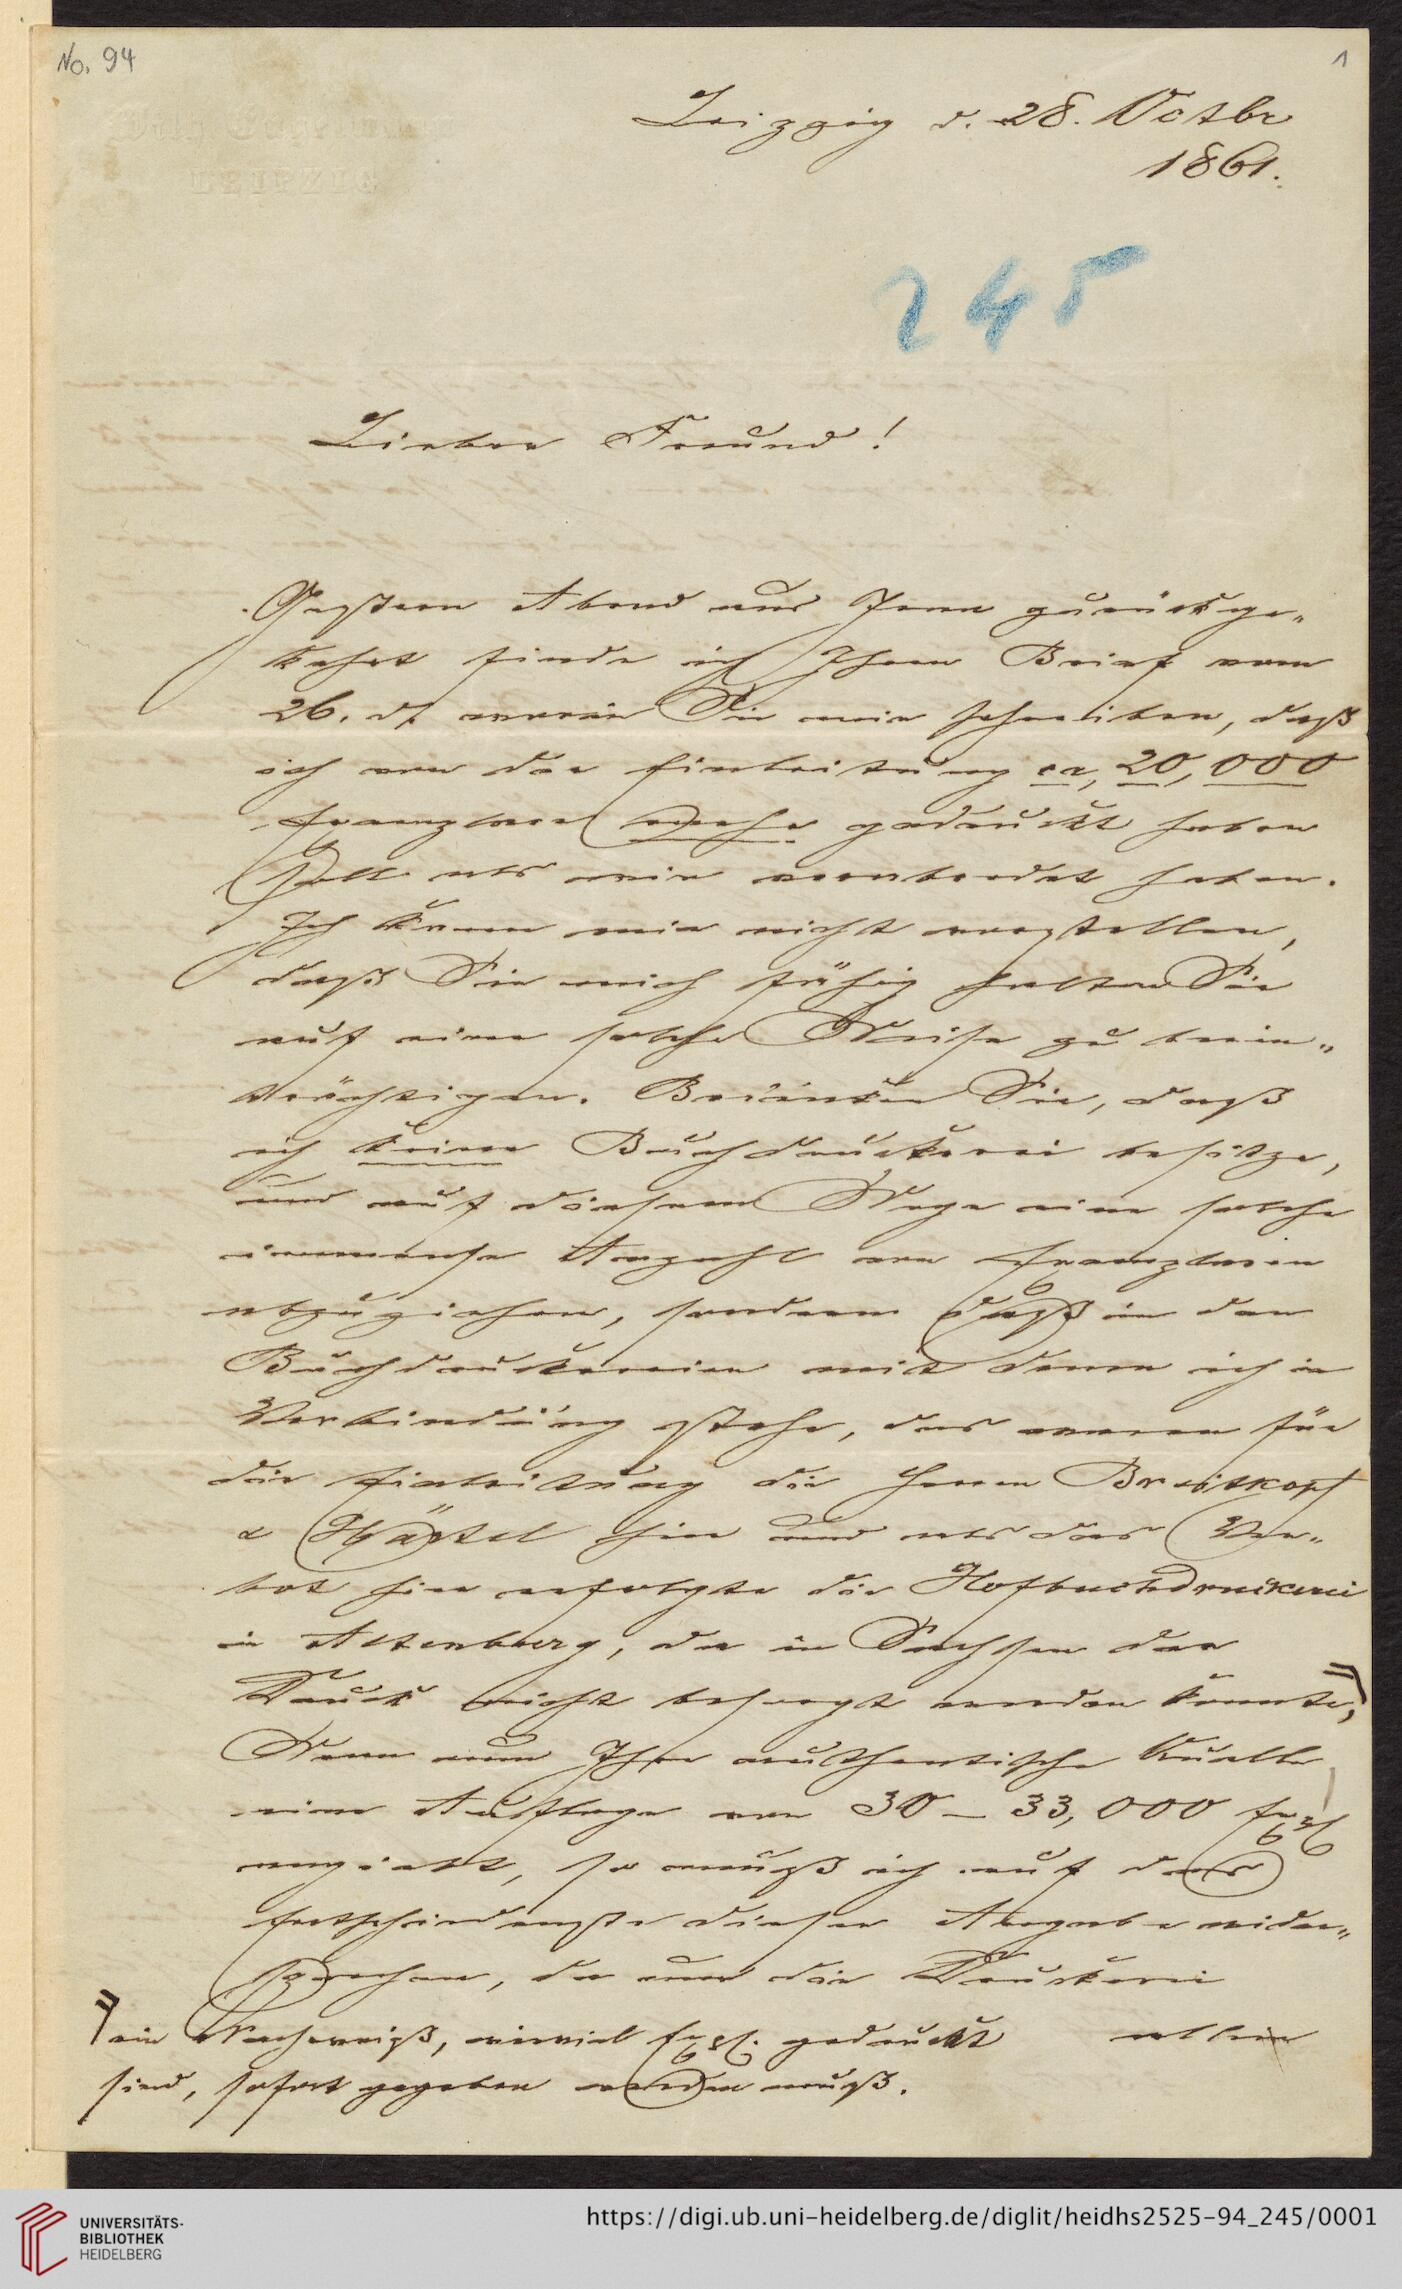 No. 94
1
LEIPZIG
Leipzig d. 28. Octbr
1861.
245
Lieber Freund!
Gestern Abend aus Jena zurückge„
kehrt finde ich Ihren Brief vom
26. d, worin Sie mir schreiben, daß
ich von der Einleitung ca, 20,000
Exemplare mehr gedruckt haben
soll als wir verabredet haben.
Ich kann mir nicht vorstellen,
daß Sie mich fähig halten Sie
auf eine solche Weise zu beein„
trächtigen. Bedenken Sie, daß
ich keine Buchdruckerei besitze,
um auf diesem Wege eine solche
immense Anzahl von Exemplaren
abzuziehen, sondern daß in den
Buchdruckereien mit denen ich in
Verbindung stehe, das waren für
die Einleitung die Herren Breitkopf
& Härtel hier und als das Ver„
bot hier erfolgte die Hofbuchdruckerei
in Altenburg, da in Sachsen der
Druck nicht besorgt werden konnte,
Wenn nun Ihre authentische Quelle
eine Auflage von 30 – 33,000 Expl
angiebt, so muß ich auf das
Entschiedenste dieser Angabe wider„
sprechen, da nur die Druckerei
allein
ein Nachweiß, wieviel Expl. gedruckt
sind, sofort gegeben werden muß.
UNIVERSITÄTS-
BIBLIOTHEK
HEIDELBERG
https://digi.ub.uni-heidelberg.de/diglit/heidhs2525-94_245/0001